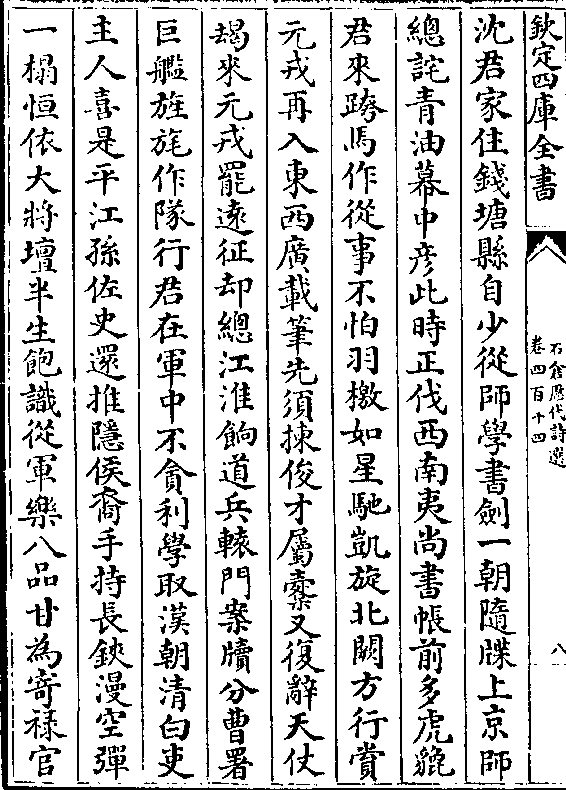 欽定四庫全書
石倉歷代詩選
卷四百十四
八
沈君家住錢塘縣自少從師學書劍一朝隨牒上京師
總詫青油幕中彦此時正伐西南夷尚書帳前多虎貔
君來跨馬作從事不怕羽檄如星馳凱旋北闕方行賞
元戎再入東西廣載筆先須揀俊才屬櫜又復辭天仗
朅來元戎罷遠征却總江淮餉道兵轅門案牘分曹署
巨艦旌旄作隊行君在軍中不貪利學取漢朝清白吏
主人喜是平江孫佐史還推隱侯裔手持長鋏漫空彈
一榻恒依大將壇半生飽識從軍樂八品甘為寄禄官